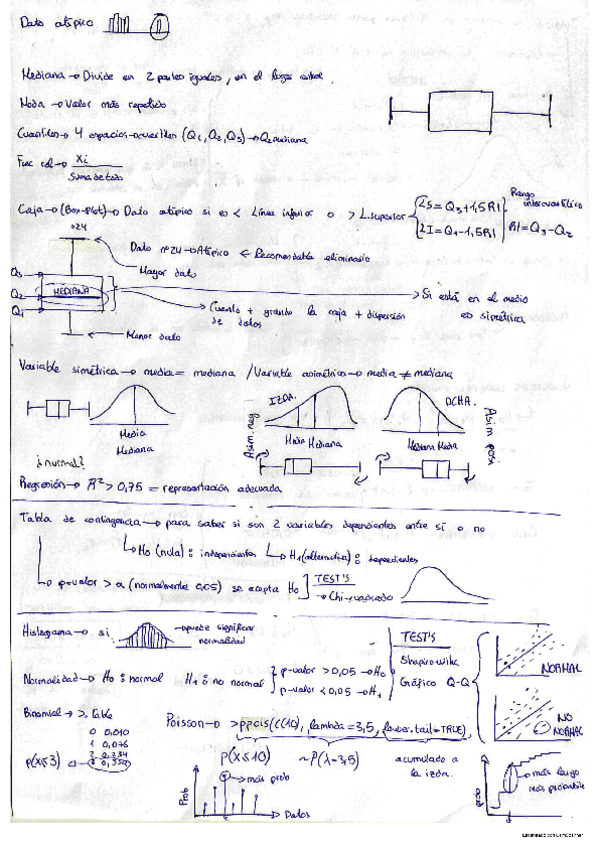 Dato atípico
Mediana → Divide en 2 partes iguales, en el lugar central.
Moda → Valor más repetido
Cuartiles → 4 espacios → cuartiles (Q1, Q2, Q3) → Q2 mediana
Frec rel → Xi
Suma de todo
Caja → (Box-Plot) → Dato atípico si es < Línea inferior o > L.superior
LS = Q3 + 1,5 RI
LI = Q1 - 1,5 RI
Rango intercuartílico
RI = Q3 - Q2
o24
Dato nº24 → Atípico ← Recomendable eliminarlo
Mayor dato
Q3
Q2
Q1
MEDIANA
Si está en el medio
es simétrica
Cuanto + grande la caja + dispersión
de datos
Menor dato
Variable simétrica → media = mediana / Variable asimétrica → media ≠ mediana
IZDA.
DCHA.
Asim neg
Asim posi
Media
Mediana
Media Mediana
Mediana Media
¿normal?
Regresión → R² > 0,75 = representación adecuada
Tabla de contingencia → para saber si son 2 variables dependientes entre sí o no
Ho (nula): independientes
H1 (alternativa): dependientes
p-valor > α (normalmente 0,05) se acepta Ho
TEST'S
Chi-cuadrado
Histograma → si
puede significar
normalidad
TEST'S
Shapiro wilk
Gráfico Q-Q
NORMAL
NO
NORMAL
Normalidad → Ho: normal H1: no normal
p-valor > 0,05 → Ho
p-valor < 0,05 → H1
Binomial → >.Table
0 0,010
1 0,076
P(X≤3)
Poisson → >ppois(c(10), lambda=3,5, lower.tail=TRUE)
P(X≤10) ~P(λ=3,5) acumulado a
la izda.
Prob
más prob
Datos
Prob
más largo
más probable
Escaneado con CamScanner